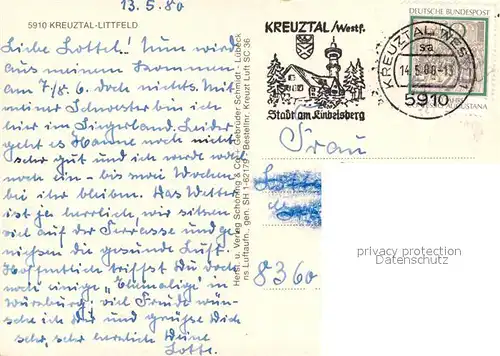 13.5.80
5910 KREUZTAL-LITTFELD
Liebe Lottel! Nun wird
aus meinem Kommen
am 7/8. 6. doch nichts. Mit
meiner Schwester bin ich
hier im Siegerland. Leider
geht es Hanne noch nicht
sehr gut und ich werde wohl
noch ein - bis zwei Wochen
bei ihr bleiben. Das Wetter
ist ja herrlich, wir sitzen
viel auf der Terrasse und ge-
nießen die gesunde Luft.
Hoffentlich triffst Du doch
noch einige "Ehemalige" in
Würzburg. Viel Freude wün-
sche ich Dir und grüße Dich
sehr, sehr herzlich Deine
Lotte.
Herst. u. Verlag Schöning & Co. + Gebrüder Schmidt - Lübeck
ns Luftaufn., gen. SH 1-62179 - Bestellnr. Kreuzt Luft SC 36
KREUZTAL/Westf.
Stadt am Kindelsberg
DEUTSCHE BUNDESPOST
KREUZTAL, WESTF
sa
14.5.80-13
5910
Frau
8360
privacy protection
Datenschutz